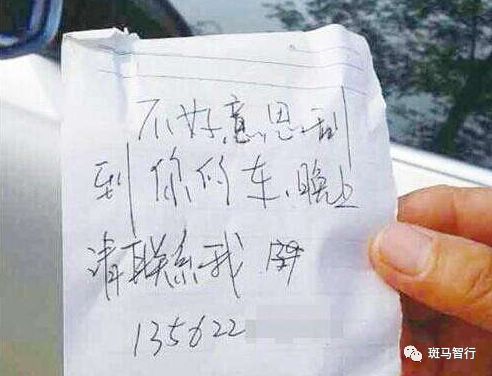 不好意思刮
到你的车,晚上
请联系我
135622
斑马智行